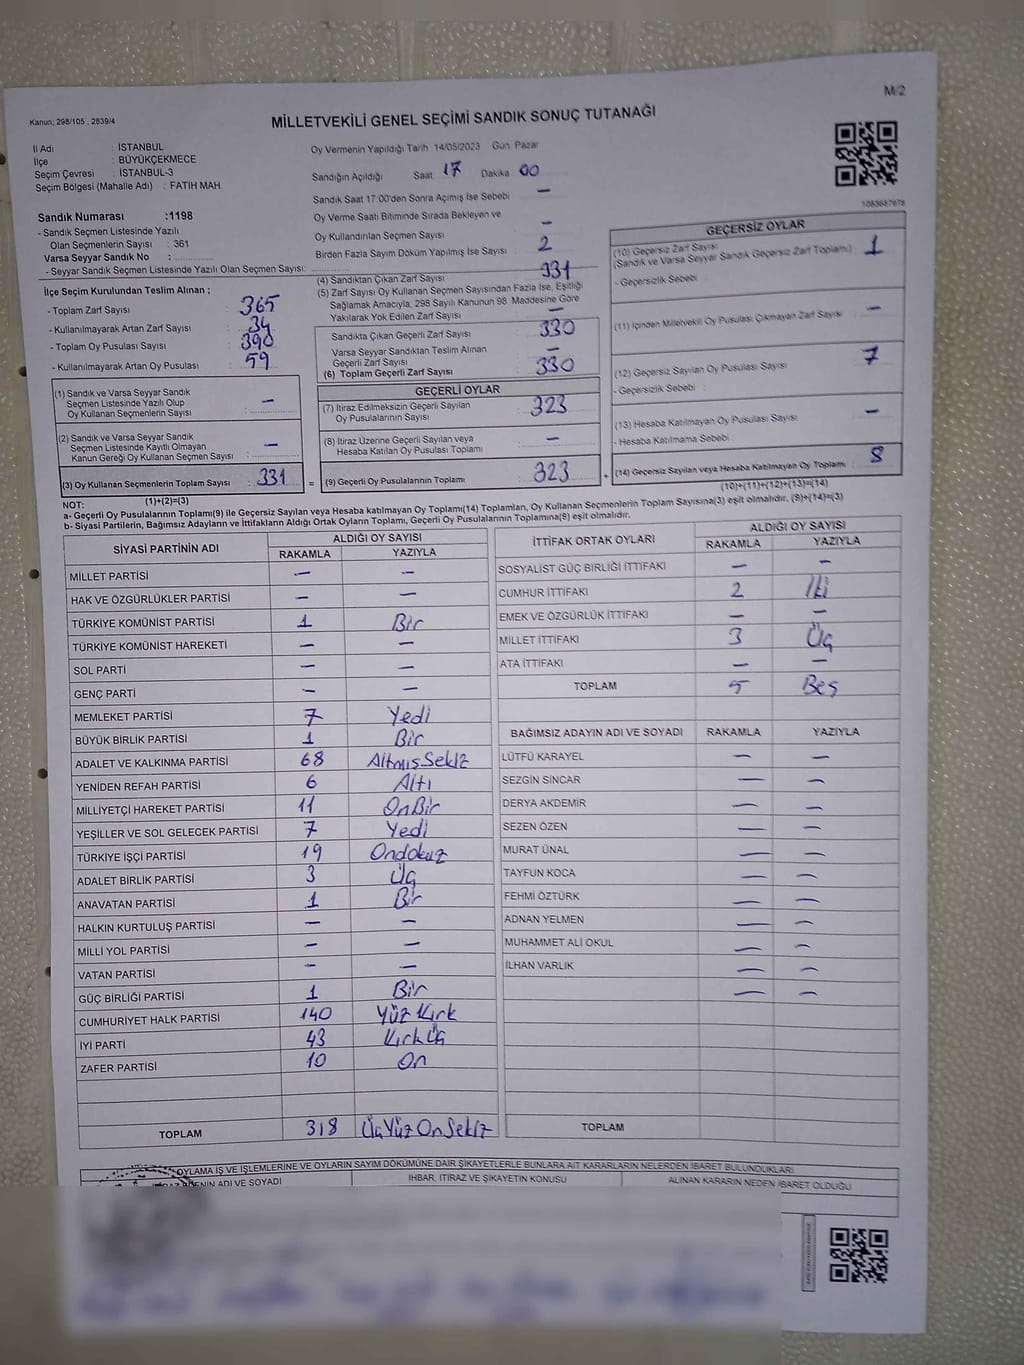 M/2
Kanun; 298/105 , 2839/4
MİLLETVEKİLİ GENEL SEÇİMİ SANDIK SONUÇ TUTANAĞI
İl Adı : İSTANBUL
İlçe : BÜYÜKÇEKMECE
Seçim Çevresi : İSTANBUL-3
Seçim Bölgesi (Mahalle Adı) : FATİH MAH.
Sandık Numarası :1198
- Sandık Seçmen Listesinde Yazılı
Olan Seçmenlerin Sayısı : 361
Varsa Seyyar Sandık No :
- Seyyar Sandık Seçmen Listesinde Yazılı Olan Seçmen Sayısı:
Oy Vermenin Yapıldığı Tarih 14/05/2023 Gün Pazar
Sandığın Açıldığı Saat 17 Dakika 00
Sandık Saat 17:00'den Sonra Açımış İse Sebebi —
Oy Verme Saati Bitiminde Sırada Bekleyen ve
Oy Kullandırılan Seçmen Sayısı —
Birden Fazla Sayım Döküm Yapılmış İse Sayısı 2
İlçe Seçim Kurulundan Teslim Alınan ;
- Toplam Zarf Sayısı : 365
- Kullanılmayarak Artan Zarf Sayısı : 34
- Toplam Oy Pusulası Sayısı : 390
- Kullanılmayarak Artan Oy Pusulası : 59
(1) Sandık ve Varsa Seyyar Sandık
Seçmen Listesinde Yazılı Olup
Oy Kullanan Seçmenlerin Sayısı : —
(2) Sandık ve Varsa Seyyar Sandık
Seçmen Listesinde Kayıtlı Olmayan
Kanun Gereği Oy Kullanan Seçmen Sayısı : —
(3) Oy Kullanan Seçmenlerin Toplam Sayısı : 331
(1)+(2)=(3)
(4) Sandıktan Çıkan Zarf Sayısı 331
(5) Zarf Sayısı Oy Kullanan Seçmen Sayısından Fazla İse, Eşitliği
Sağlamak Amacıyla, 298 Sayılı Kanunun 98. Maddesine Göre
Yakılarak Yok Edilen Zarf Sayısı —
Sandıkta Çıkan Geçerli Zarf Sayısı 330
Varsa Seyyar Sandıktan Teslim Alınan
Geçerli Zarf Sayısı —
(6) Toplam Geçerli Zarf Sayısı 330
GEÇERLİ OYLAR
(7) İtiraz Edilmeksizin Geçerli Sayılan
Oy Pusulalarının Sayısı : 323
(8) İtiraz Üzerine Geçerli Sayılan veya
Hesaba Katılan Oy Pusulası Toplamı : —
= (9) Geçerli Oy Pusulalarının Toplamı : 323 +
1083687678
GEÇERSİZ OYLAR
(10) Geçersiz Zarf Sayısı
(Sandık ve Varsa Seyyar Sandık Geçersiz Zarf Toplamı) 1
- Geçersizlik Sebebi :
(11) İçinden Milletvekili Oy Pusulası Çıkmayan Zarf Sayısı : —
(12) Geçersiz Sayılan Oy Pusulası Sayısı : 7
- Geçersizlik Sebebi :
(13) Hesaba Katılmayan Oy Pusulası Sayısı : —
- Hesaba Katılmama Sebebi :
(14) Geçersiz Sayılan veya Hesaba Katılmayan Oy Toplamı : 8
(10)+(11)+(12)+(13)=(14)
NOT:
a- Geçerli Oy Pusulalarının Toplamı(9) ile Geçersiz Sayılan veya Hesaba katılmayan Oy Toplamı(14) Toplamları, Oy Kullanan Seçmenlerin Toplam Sayısına(3) eşit olmalıdır. (9)+(14)=(3)
b- Siyasi Partilerin, Bağımsız Adayların ve İttifakların Aldığı Ortak Oyların Toplamı, Geçerli Oy Pusulalarının Toplamına(9) eşit olmalıdır.
SİYASİ PARTİNİN ADI ALDIĞI OY SAYISI
RAKAMLA YAZIYLA
MİLLET PARTİSİ — —
HAK VE ÖZGÜRLÜKLER PARTİSİ — —
TÜRKİYE KOMÜNİST PARTİSİ 1 Bir
TÜRKİYE KOMÜNİST HAREKETİ — —
SOL PARTİ — —
GENÇ PARTİ — —
MEMLEKET PARTİSİ 7 Yedi
BÜYÜK BİRLİK PARTİSİ 1 Bir
ADALET VE KALKINMA PARTİSİ 68 AltmışSekiz
YENİDEN REFAH PARTİSİ 6 Altı
MİLLİYETÇİ HAREKET PARTİSİ 11 OnBir
YEŞİLLER VE SOL GELECEK PARTİSİ 7 Yedi
TÜRKİYE İŞÇİ PARTİSİ 19 Ondokuz
ADALET BİRLİK PARTİSİ 3 Üç
ANAVATAN PARTİSİ 1 Bir
HALKIN KURTULUŞ PARTİSİ — —
MİLLİ YOL PARTİSİ — —
VATAN PARTİSİ — —
GÜÇ BİRLİĞİ PARTİSİ 1 Bir
CUMHURİYET HALK PARTİSİ 140 Yüz Kırk
İYİ PARTİ 43 Kırk Üç
ZAFER PARTİSİ 10 On
TOPLAM 318 ÜçYüzOnSekiz
İTTİFAK ORTAK OYLARI ALDIĞI OY SAYISI
RAKAMLA YAZIYLA
SOSYALİST GÜÇ BİRLİĞİ İTTİFAKI — —
CUMHUR İTTİFAKI 2 İki
EMEK VE ÖZGÜRLÜK İTTİFAKI — —
MİLLET İTTİFAKI 3 Üç
ATA İTTİFAKI — —
TOPLAM 5 Beş
BAĞIMSIZ ADAYIN ADI VE SOYADI RAKAMLA YAZIYLA
LÜTFÜ KARAYEL — —
SEZGİN SİNCAR — —
DERYA AKDEMİR — —
SEZEN ÖZEN — —
MURAT ÜNAL — —
TAYFUN KOCA — —
FEHMİ ÖZTÜRK — —
ADNAN YELMEN — —
MUHAMMET ALİ OKUL — —
İLHAN VARLIK — —
— —
TOPLAM
OYLAMA İŞ VE İŞLEMLERİNE VE OYLARIN SAYIM DÖKÜMÜNE DAİR ŞİKAYETLERLE BUNLARA AİT KARARLARIN NELERDEN İBARET BULUNDUKLARI
ADI VE SOYADI İHBAR, İTİRAZ VE ŞİKAYETİN KONUSU ALINAN KARARIN NEDEN İBARET OLDUĞU